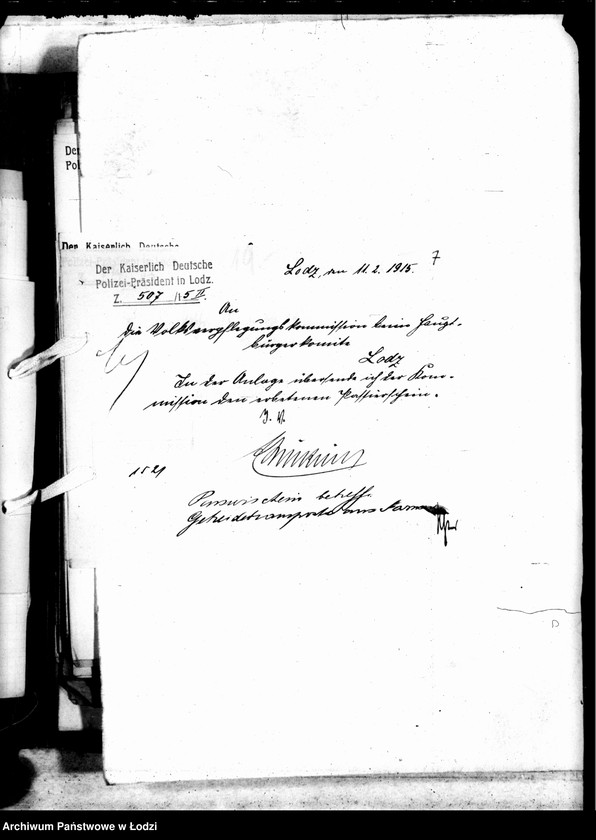 Der
Pol
Der Kaiserlich Deutsche
Der Kaiserlich Deutsche
Polizei-Präsident in Lodz.
Z. 507 /15 II.
Lodz, den 11. 2. 1915.
7
An
die Volksverpflegungskommission beim Haupt-
bürgerkomite
Lodz
In der Anlage übersende ich der Kom-
mission den erbetenen Passierschein.
J. V.
1521
Passierschein betreff.
Getreidetransporte aus
D
Archiwum Państwowe w Łodzi